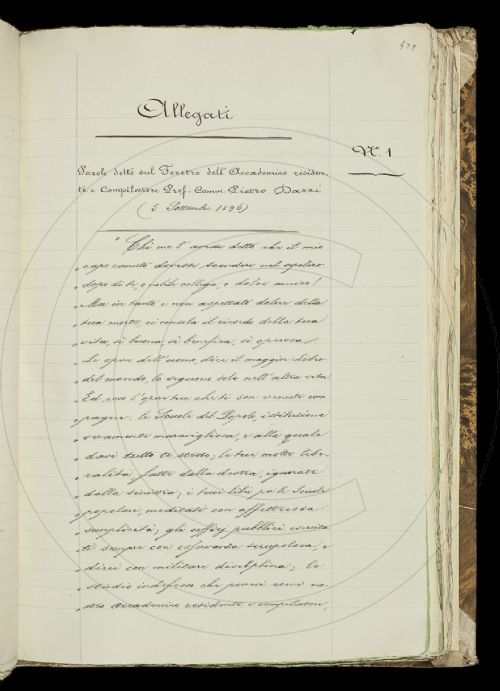 573
Allegati
N.° 1
Parole dette sul Feretro dell'Accademico residen-
te e Compilatore Prof. Comm. Pietro Dazzi
(5 Settembre 1896)
" Chi me l'avesse detto che il mio
" capo canuto dovesse scendere nel sepolcro
" dopo di te, nobile collega, o dolce amico!
" Ma in tanto e non aspettato dolore della
" tua morte, ci consola il ricordo della tua
" vita, sì buona, sì benefica, sì operosa!
" Le opere dell'uomo, dice il maggior Libro
" del mondo, lo seguono solo nell'altra vita.
" Ed ecco l'opere tue che ti son venute com-
" pagne: le Scuole del Popolo, istituzione
" veramente maravigliosa, e alla quale
" davi tutto te stesso; le tue molte libe-
" ralità fatte dalla destra, ignorate
" dalla sinistra; i tuoi libri per le Scuole
" popolari, meditati con affettuosa
" semplicità; gli ufficj pubblici esercita-
" ti sempre con esfervanza scrupolosa, e
" direi con militare disciplina; lo
" studio indefesso che ponevi come no-
" stro Accademico residente e compilatore,